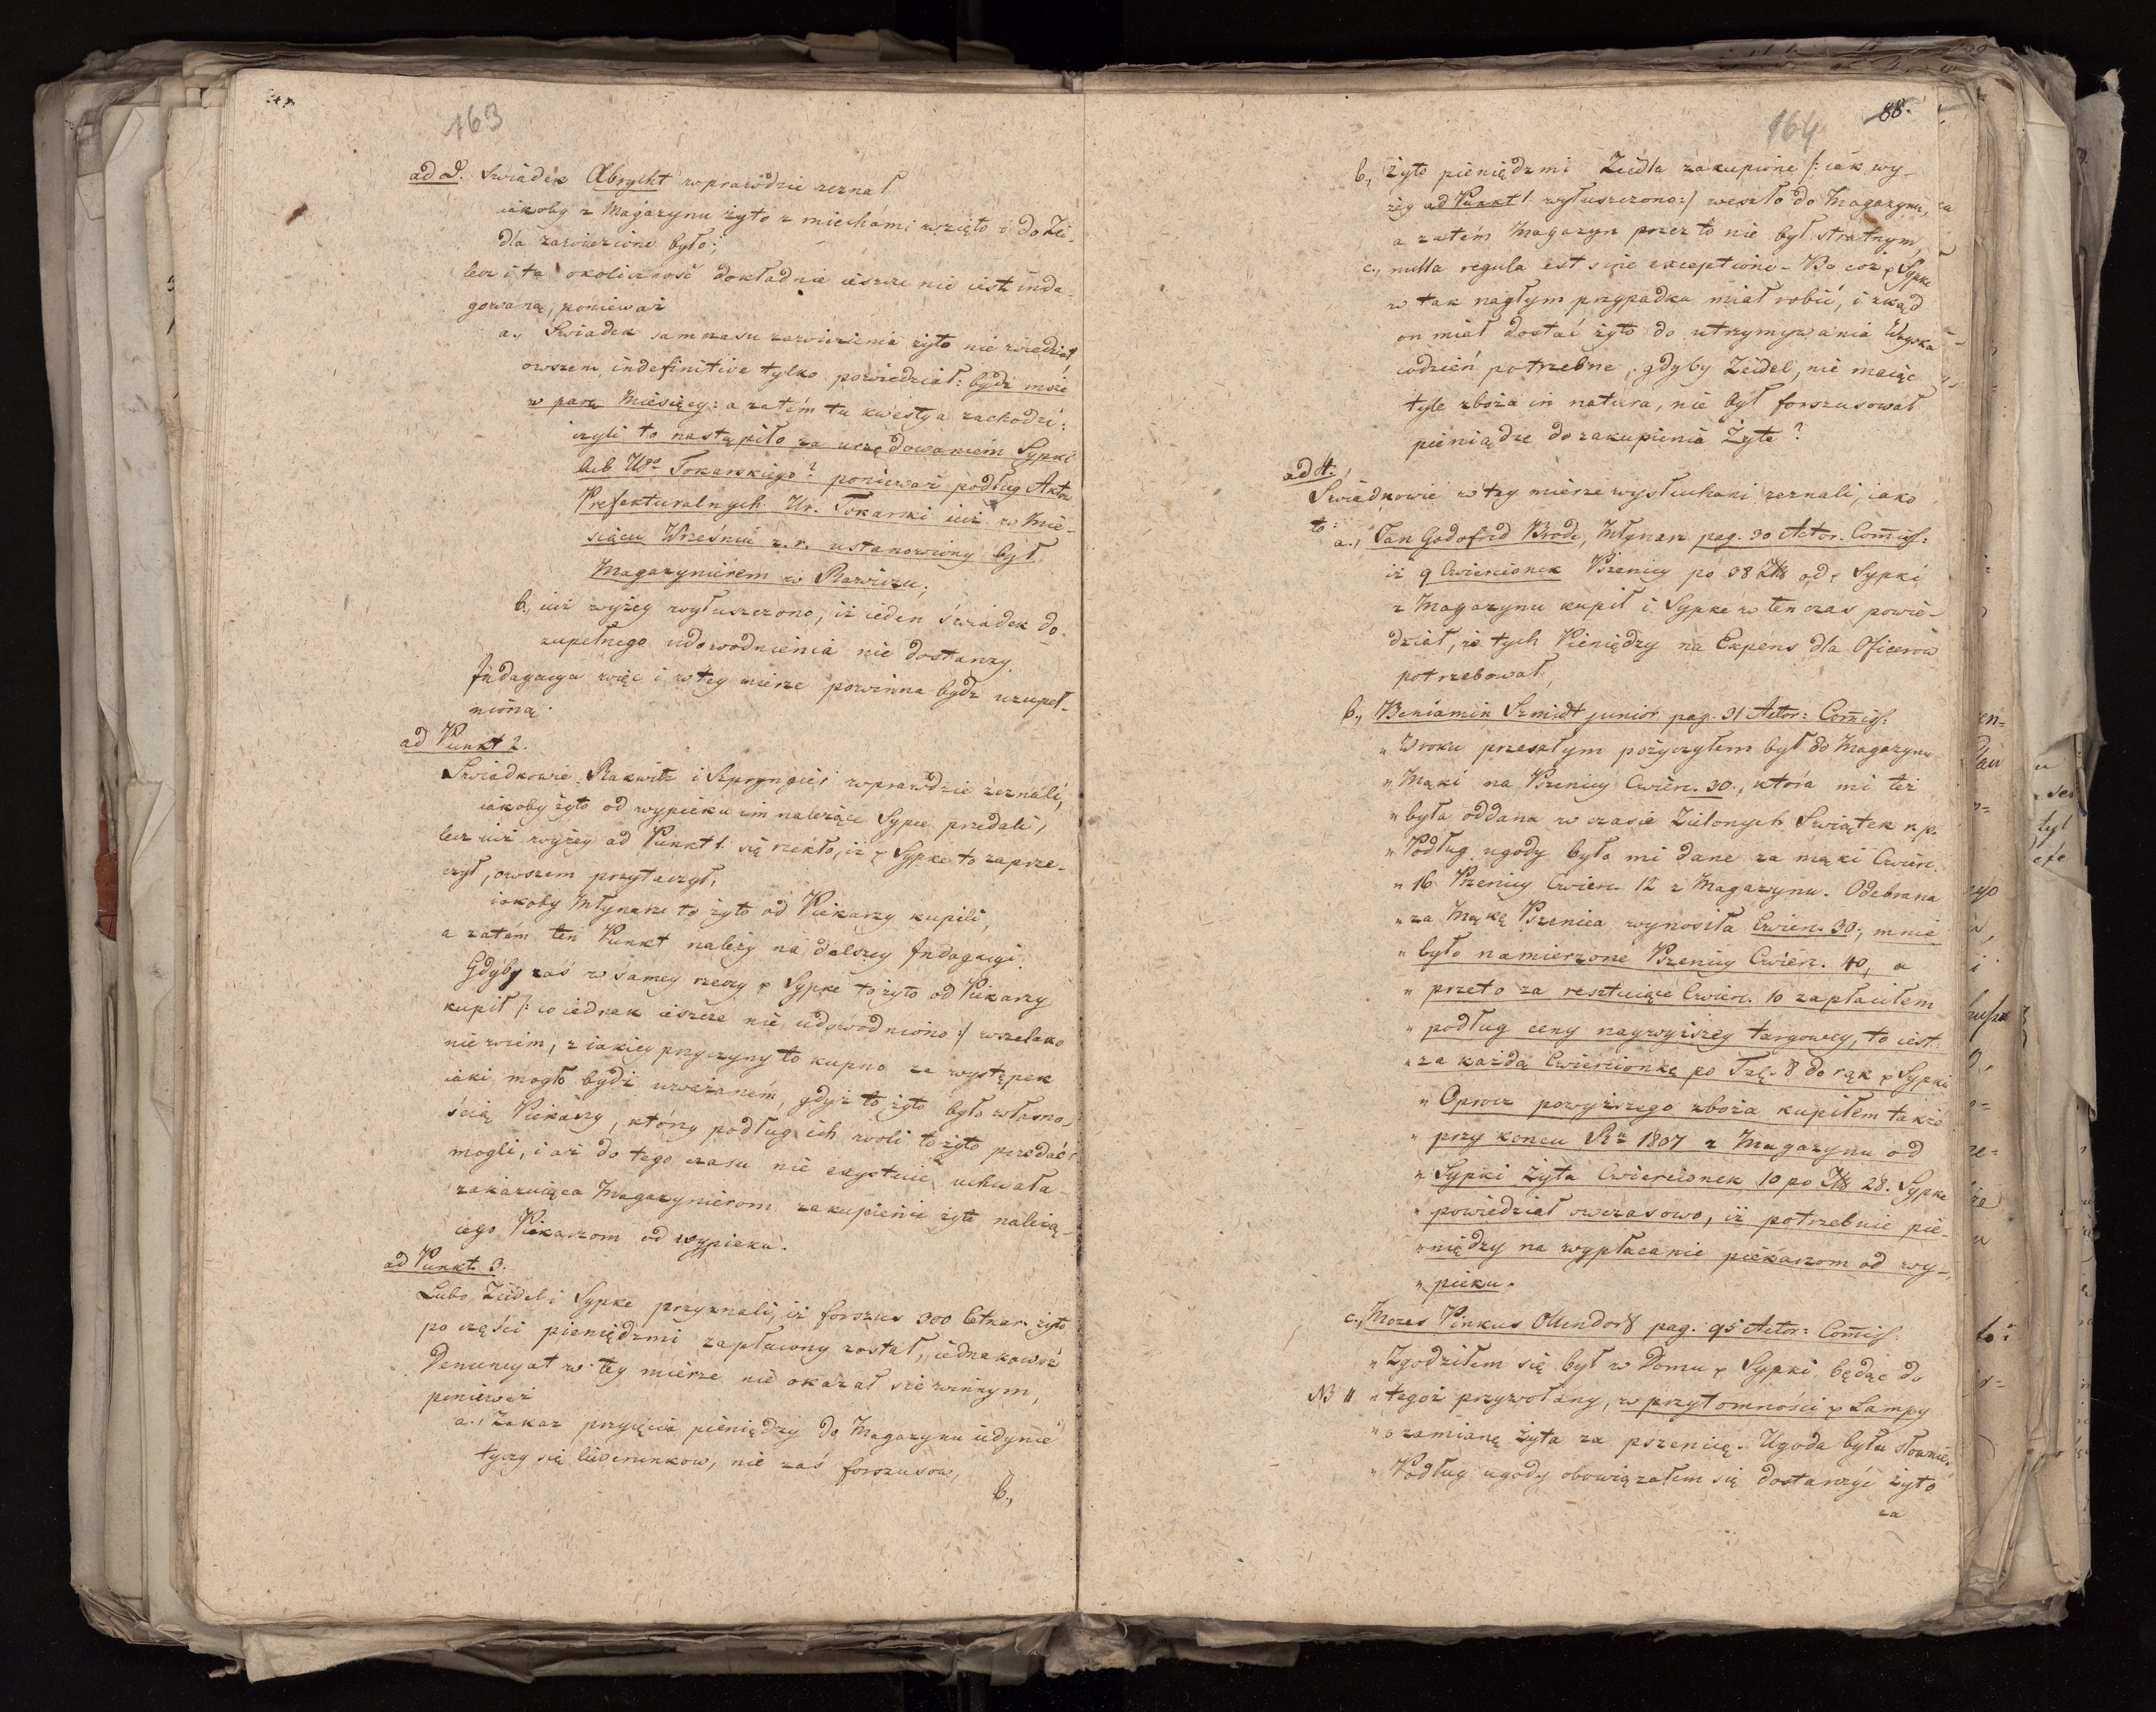 163
ad d. Swiadek Abrycht wprawdzie zeznał
iakoby z Magazynu żyto z miechami wzięto i do Zei-
dla zawiezione było;
lecz i ta okoliczność dokładnie ieszcze nie iest inda-
gowaną, ponieważ
a., Swiadek sam czasu zawiezienia żyta nie wiedział,
owszem indefinitive tylko powiedział: bydź może
w parę Miesięcy: a zatém tu kwestya zachodzi:
czyli to nastąpiło za urzędowaniem Sypki
lub Wgo Tokarskiego? ponieważ podług Aktow
Prefekturalnych Ur. Tokarski iuż w Mie-
siącu Wrześniu r. r. ustanowiony był
Magazynierem w Rawiczu;
b., iuż wyżey wyłuszczono, iż ieden świadek do
zupełnego udowodnienia nie dostarczy.
Indagacya więc i w tey mierze powinna bydz uzupeł-
nioną.
ad Punkt 2.
Swiadkowie Rakwitz i Szpryngier wprawdzie zeznali,
iakoby żyto od wypieku im należące Sypce przedali,
lecz iuż wyżey ad Punkt 1. się rzekło, iż p Sypke to zaprze-
czył, owszem przytaczył,
iakoby Młynarze to żyto od Piekarzy kupili,
a zatem ten Punkt należy na dalszey Indagacyi.
Gdyby zaś w samey rzeczy p Sypke to żyto od Piekarzy
kupił /: co iednak ieszcze nie udowodniono :/ wszelako
nie wiem, z iakiey przyczyny to kupno za występek
iaki mogło bydź uważaném, gdyż to żyto było własno-
ścią Piekarzy, którzy podług ich woli to żyto przedać
mogli, i aż do tego czasu nie exystuie uchwała
zakazuiąca Magazynierom zakupienie żyta należą-
cego Piekarzom od wypieku.
ad Punkt 3.
Lubo Zeidel i Sypke przyznali, iż forszus 300 Cetnar. żyta
po części pieniędzmi zapłacony został, iednakowoż
Denuncyat w tey mierze nie okazał sie winnym,
ponieważ
a., Zakaz przyięcia pieniędzy do Magazynu iedynie
tyczy się liwerunkow, nie zaś forszusow,
b.,
164
88.
b., żyto pieniędzmi Zeidla zakupione /: iak wy-
żey ad Punkt 1. wyłuszczono :/ weszło do Magazynu,
a zatém Magazyn przez to nie był stratnym,
c., nulla regula est sine exceptione - Bo coż p Sypke
w tak nagłym przypadku miał robić, i zkąd
on miał dostać żyto do utrzymywania Woyska
codzień potrzebne, gdyby Zeidel, nie maiąc
tyle zboża in natura, nie był forszusował
pieniądze do zakupienia Żyta?
ad 4.,
Swiadkowie w tey mierze wysłuchani zeznali, iako
to:
a., Jan Godofrid Brode, Młynarz pag. 30 Actor. Commiss:
iż 9 Cwiercionek Pszenicy po 38 Złł od p Sypki
z Magazynu kupił i Sypke w ten czas powie-
dział, że tych Pieniędzy na Expens dla Oficerow
potrzebował,
b., Beniamin Szmidt junior pag. 31 Actor: Commiss:
" W roku przeszłym pożyczyłem był do Magazynu
" Mąki na Pszenicy Cwierc. 30., która mi też
" była oddana w czasie Zielonych Swiątek r. p.
" Podług ugody było mi dane za mąki Cwierc.
" 16 Pszenicy Cwierc. 12 z Magazynu. Odebrana
" za Mąkę Pszenica wynosiła Cwierc. 30., mnie
" było namierzone Pszenicy Cwierc. 40, a
" przeto za resztuiące Cwierc. 10 zapłaciłem
" podług ceny naywyższey targowey, to iest
" za każdą Cwiercionkę po Tal. 8 do rąk p Sypki
" Oprocz powyższego zboża kupiłem także
" przy koncu Rn 1807 z Magazynu od
" Sypki Żyta Cwiercionek 10 po Złł 28. Sypke
" powiedział owczasowo, iż potrzebuie pie-
" niędzy na wypłacanie piekarzom od wy-
" pieku.
c., Mozes Pinkus Ollendorf pag. 95 Actor: Commiss:
" Zgodziłem się był w Domu p Sypki będąc do
NB " " tegoż przywołany, w przytomności p Lampy
" o zamianę żyta za pszenicę. Ugoda była słowną.
" Podług ugody obowiązałem się dostarczyć żyto
za